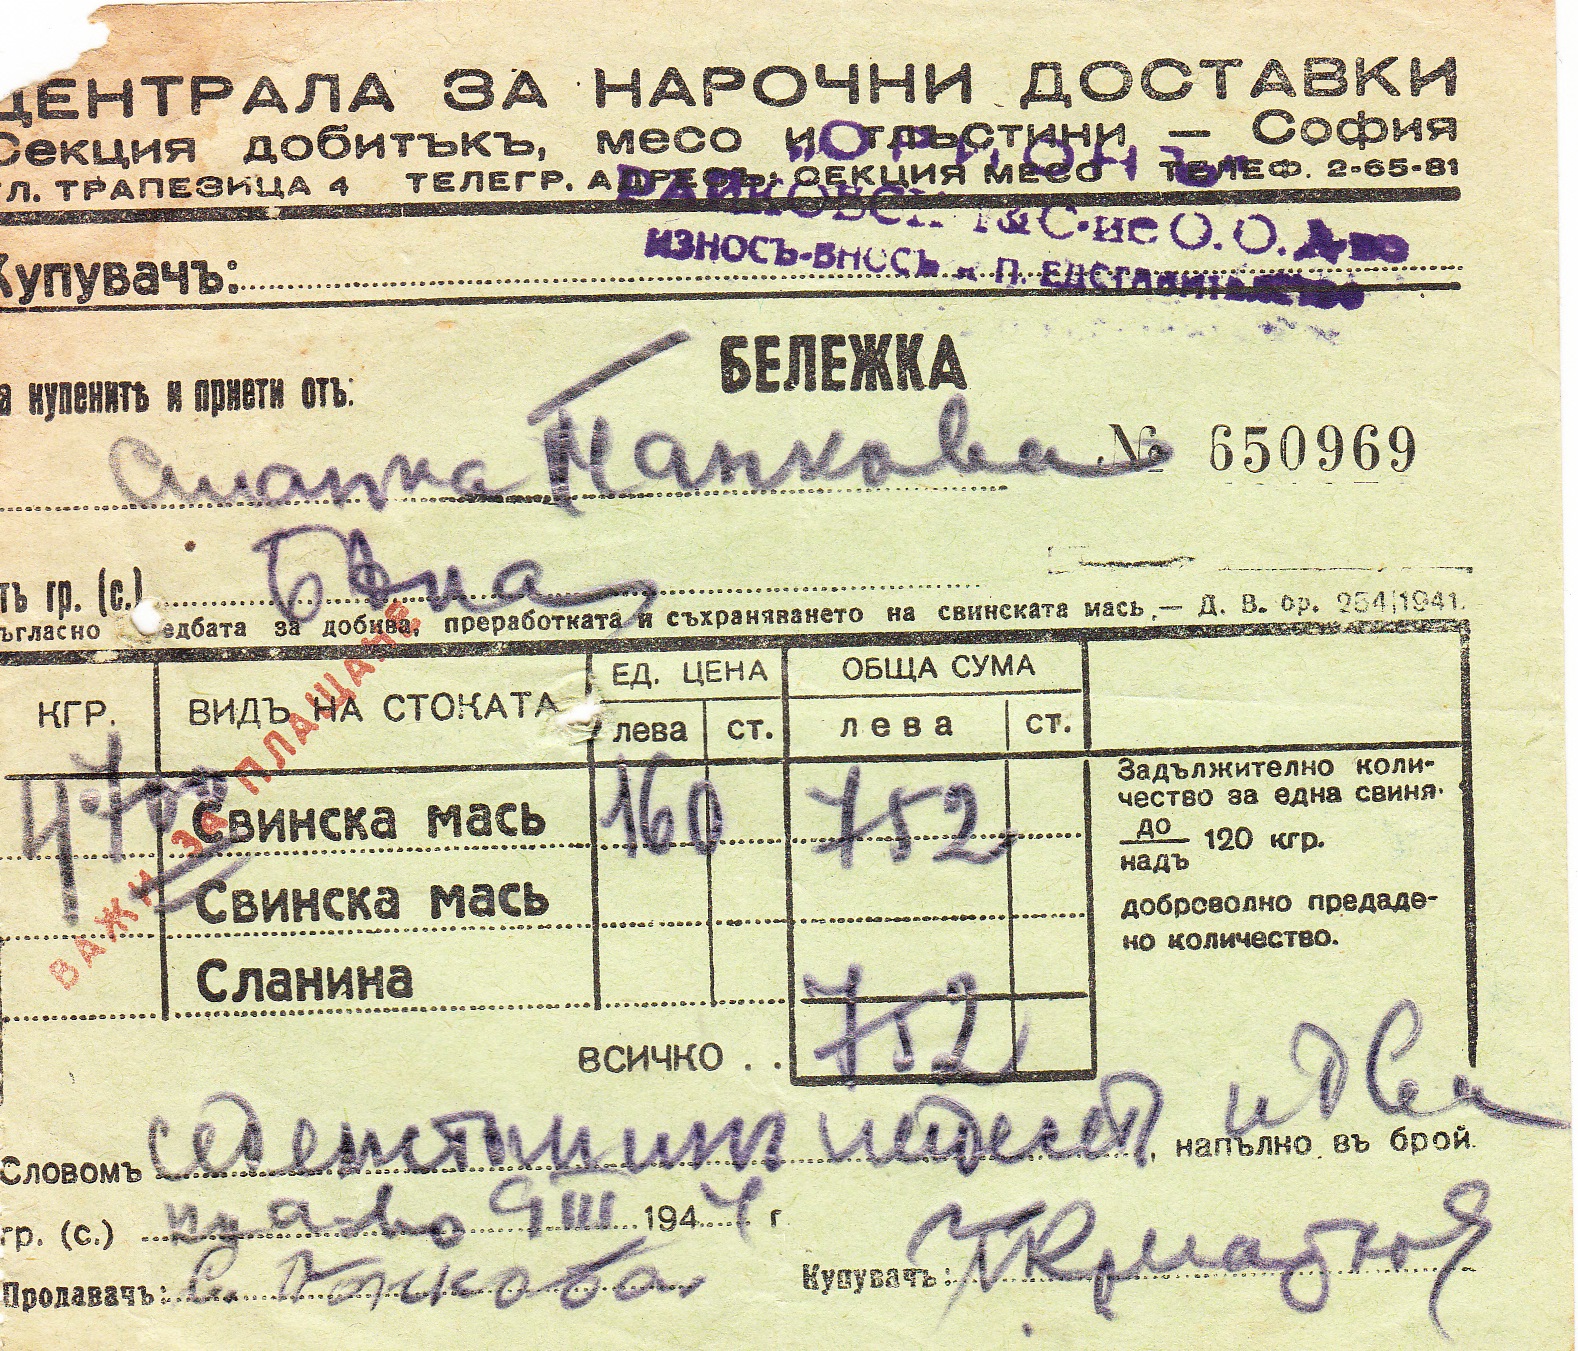 ЦЕНТРАЛА ЗА НАРОЧНИ ДОСТАВКИ
Секция добитъкъ, месо и тлъстини — София
УЛ. ТРАПЕЗИЦА 4 ТЕЛЕГР. АДРЕСЪ: СЕКЦИЯ МЕСО ТЕЛЕФ. 2-65-81
„ОРИОНЪ“
РАЙКОВСКИ & С-ие О. О. Д-во
ИЗНОСЪ-ВНОСЪ и П. ЕДСТАВИТЕЛСТВО
Купувачъ:
БЕЛЕЖКА
а купенитѣ и приети отъ:
№ 650969
Панкова
тъ гр. (с.) Баня
ъгласно едбата за добива, преработката и съхраняването на свинската мась. — Д. В. бр. 254/1941.
КГР. ВИДЪ НА СТОКАТА ЕД. ЦЕНА ОБЩА СУМА
лева ст. лева ст.
4.700 Свинска мась 160 752
Свинска мась
Сланина
ВАЖИ ЗА ПЛАЩАНЕ
Задължително коли-
чество за една свиня.
до
надъ 120 кгр.
доброволно предаде-
но количество.
ВСИЧКО . . 752
Словомъ седемстотинъ петдесетъ и два, напълно въ брой.
гр. (с.) 9 III 1944 г.
Продавачъ: С. Панкова Купувачъ: